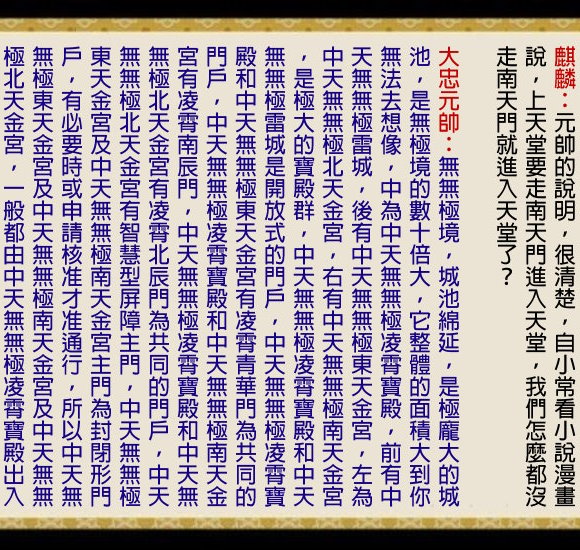 麒麟：元帥的說明，很清楚，自小常看小說漫畫
說，上天堂要走南天門進入天堂，我們怎麼都沒
走南天門就進入天堂了？
大忠元帥：無無極境，城池綿延，是極龐大的城
池，是無極境的數十倍大，它整體的面積大到你
無法去想像，中為中天無無極凌霄寶殿，前有中
天無無極雷城，後有中天無無極東天金宮，左為
中天無無極北天金宮，右有中天無無極南天金宮
，是極大的寶殿群，中天無無極凌霄寶殿和中天
無無極雷城是開放式的門戶，中天無無極凌霄寶
殿和中天無無極東天金宮有凌霄青華門為共同的
門戶，中天無無極凌霄寶殿和中天無無極南天金
宮有凌霄南辰門，中天無無極凌霄寶殿和中天無
無極北天金宮有凌霄北辰門為共同的門戶，中天
無無極北天金宮有智慧型屏障主門，中天無無極
東天金宮及中天無無極南天金宮主門為封閉形門
戶，有必要時或申請核准才准通行，所以中天無
無極東天金宮及中天無無極南天金宮及中天無無
極北天金宮，一般都由中天無無極凌霄寶殿出入